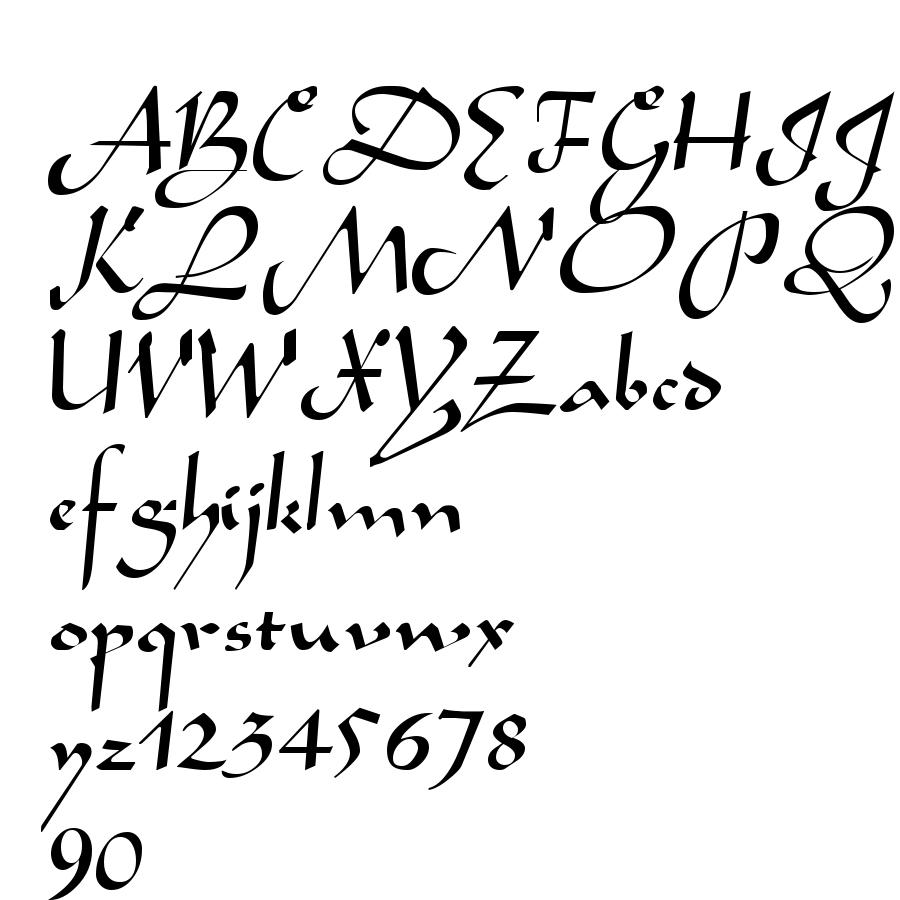 ABCDEFGHIJ
KLMNOPQ
UVWXYZabcd
efghijklmn
opqrstuvwx
yz12345678
90